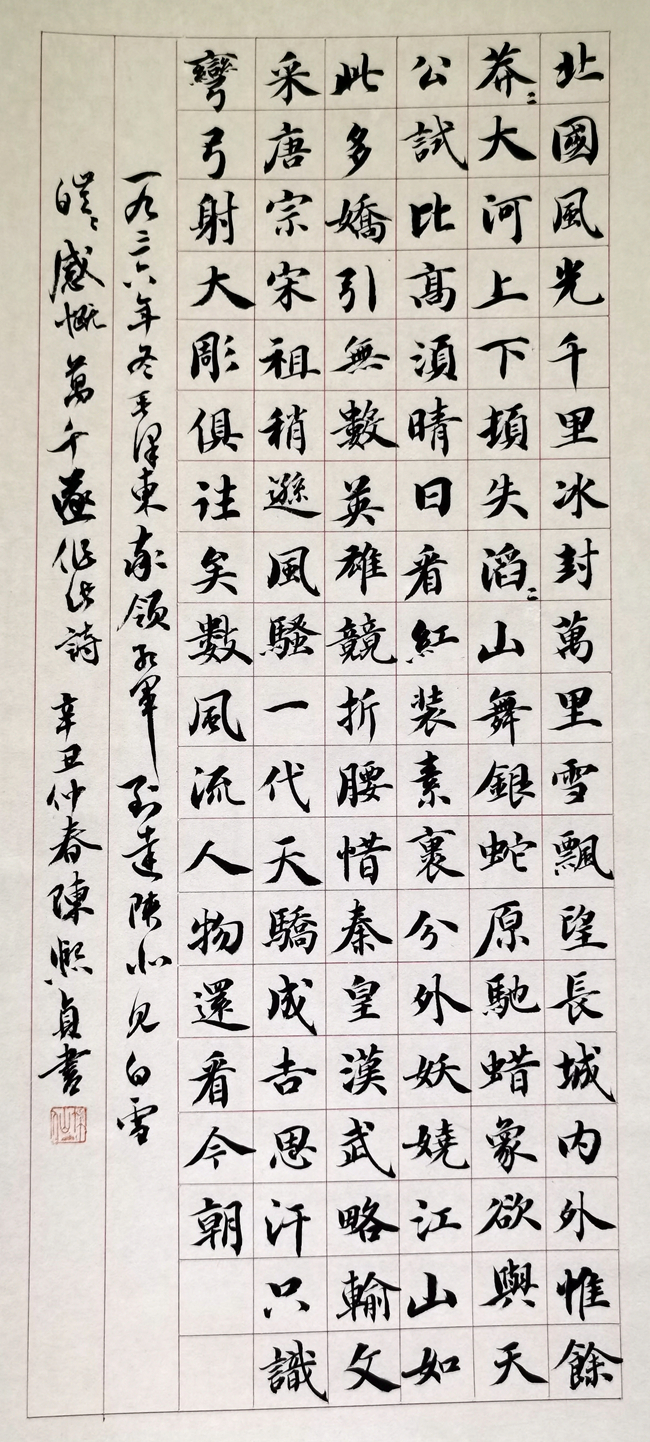 北國風光千里冰封萬里雪飄望長城内外惟餘
莽〻大河上下頓失滔〻山舞銀蛇原馳蜡象欲與天
公試比高須晴日看紅装素裹分外妖嬈江山如
此多嬌引無數英雄競折腰惜秦皇漢武略輸文
采唐宗宋祖稍遜風騷一代天驕成吉思汗只識
彎弓射大彫俱往矣數風流人物還看今朝
一九三六年冬毛澤東率領紅軍到達陝北見白雪
皚〻感慨萬千遂作此詩 辛丑仲春陳熙貞書